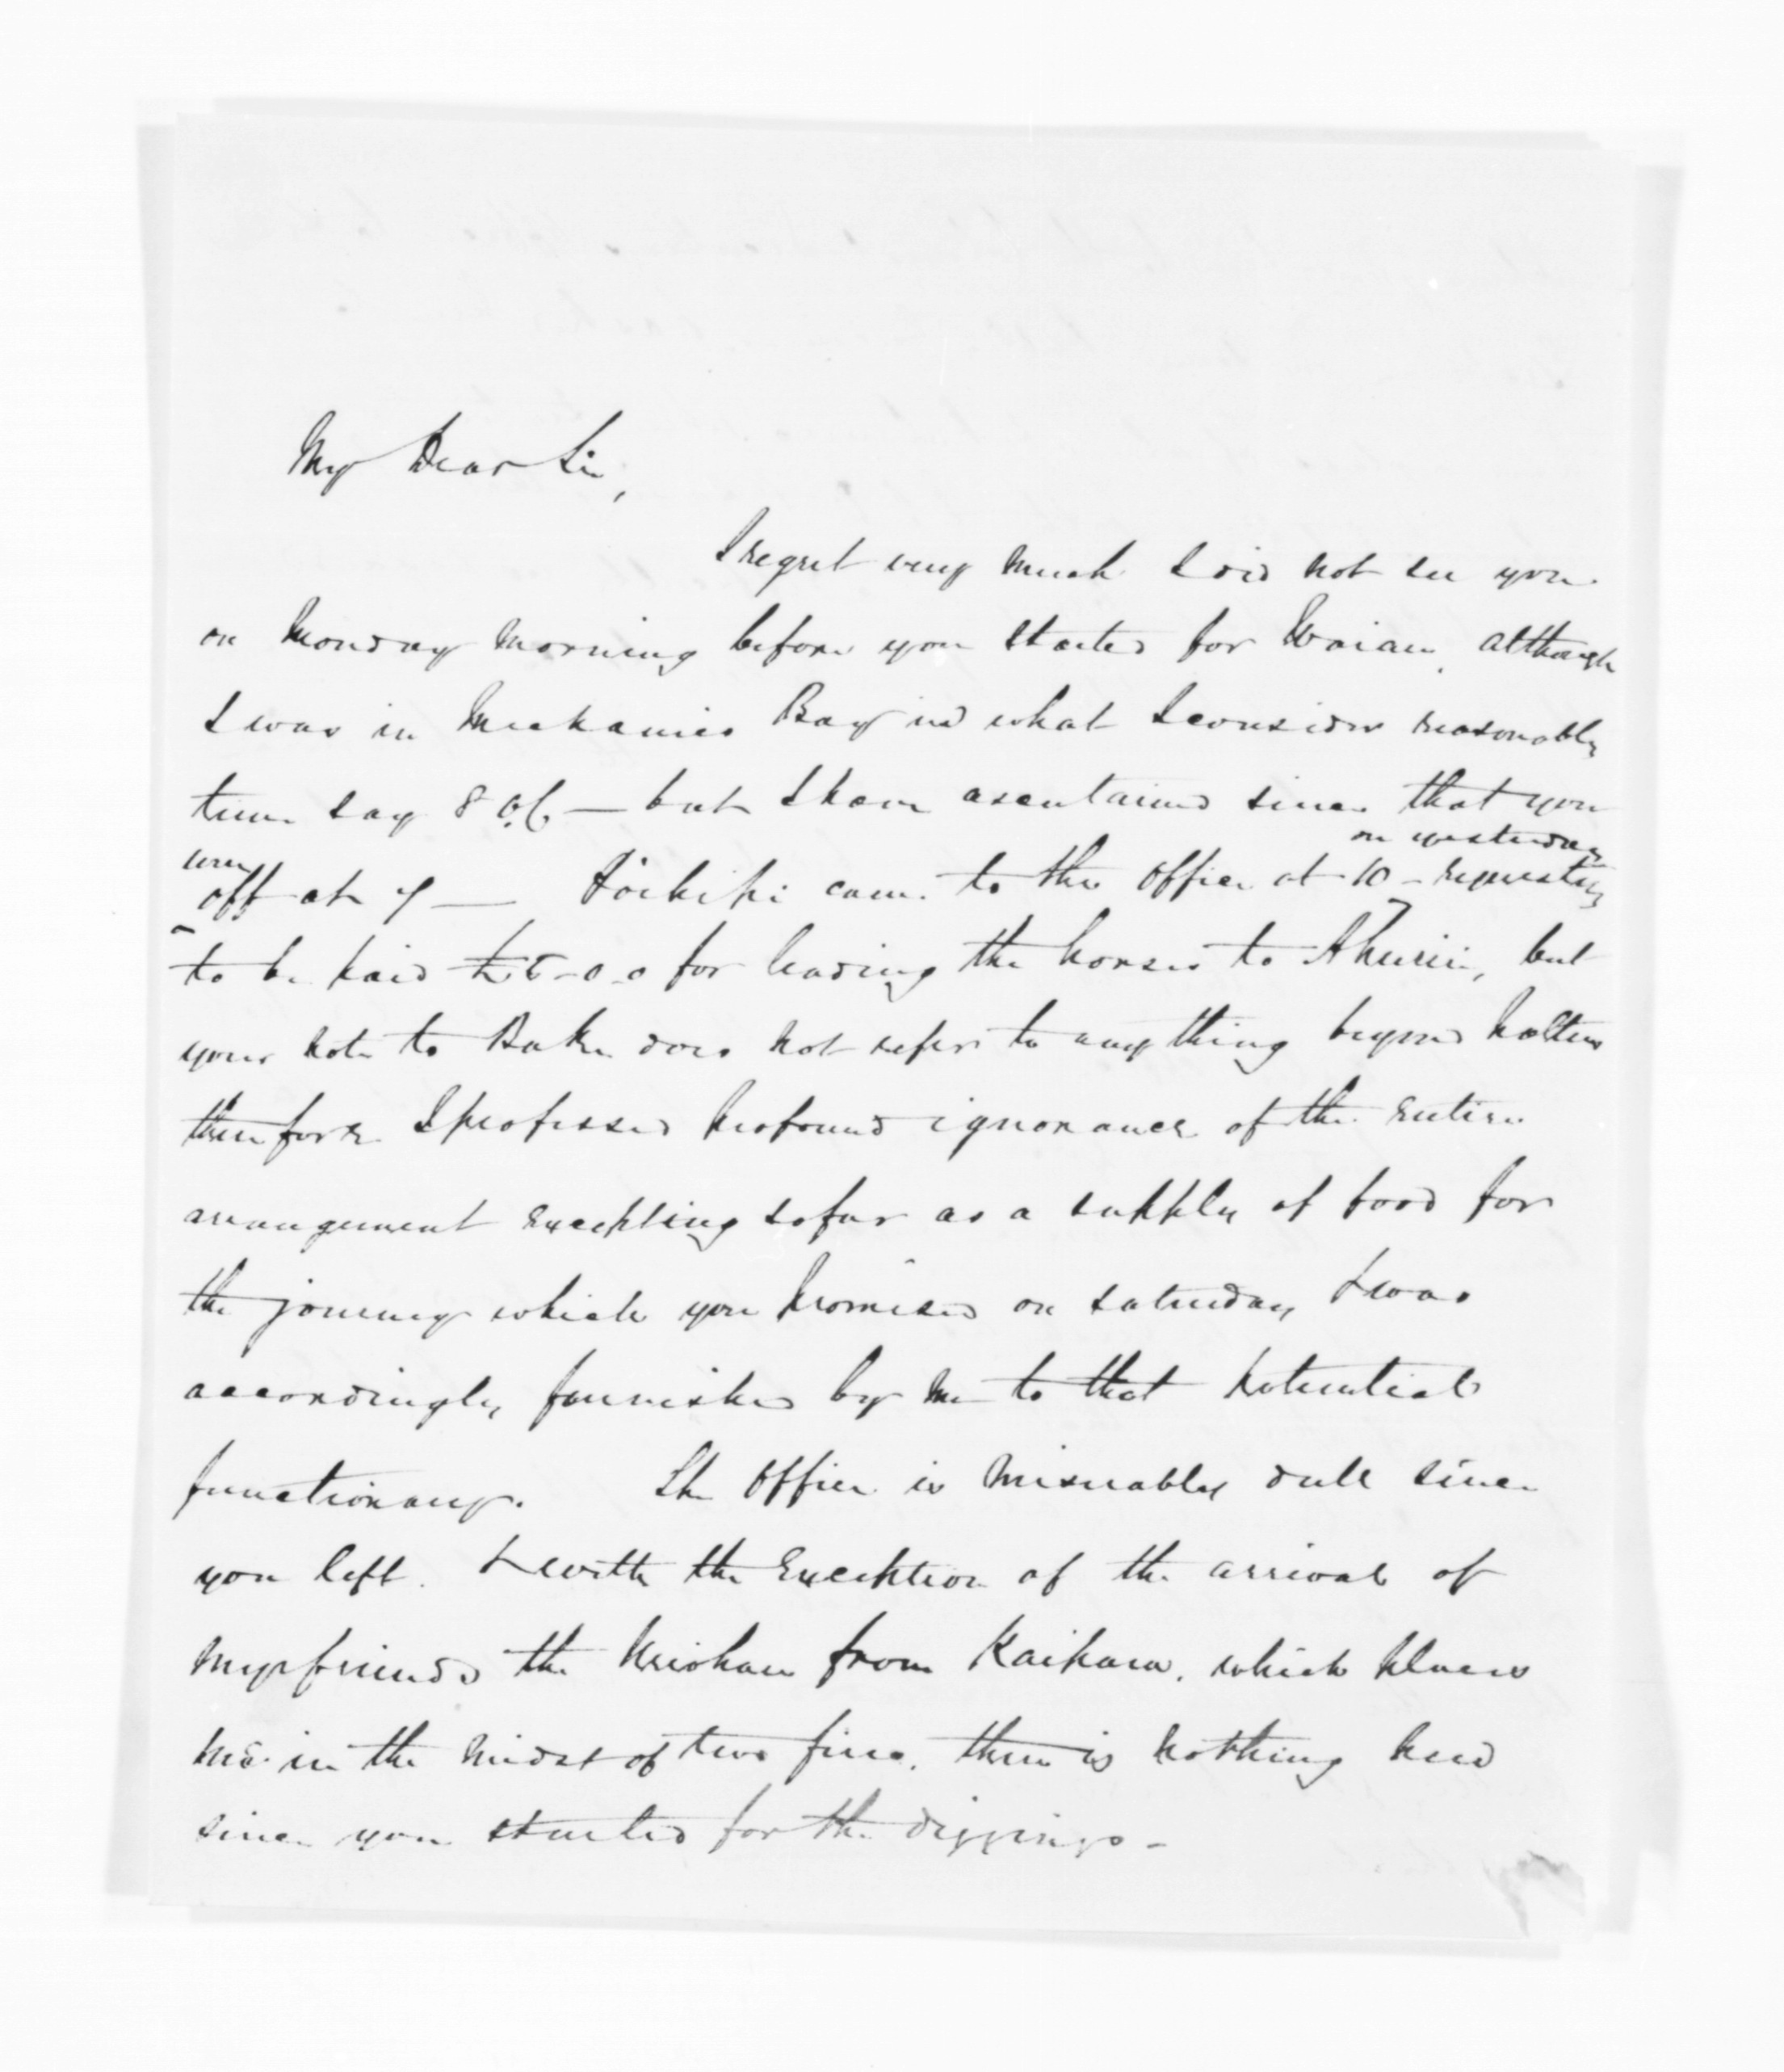 My Dear Sir,
I regret very much I did not see you
on Monday morning before you started for Waiau, although
I was in Mechanics Bay in what I consider reasonably
time say 8 o.C — but I have ascertained since that you
on yesterday
were
off at 7 — came to the office at 10 - requesting
to be paid £5-0-0 for leading the horses to Ahuriri, but
your note to Baker does not refer to anything beyond halters
therefore I professed profound ignorance of the entire
arrangement excepting so far as a supply of food for
the journey which you promised on Saturday, & was
accordingly, furnished by me to that potential
functionary. The Office is miserably dull since
you left. & with the exception of the arrival of
my friends the from Kaipara, which places
me in the midst of two fires, there is nothing new
since you started for the diggings -